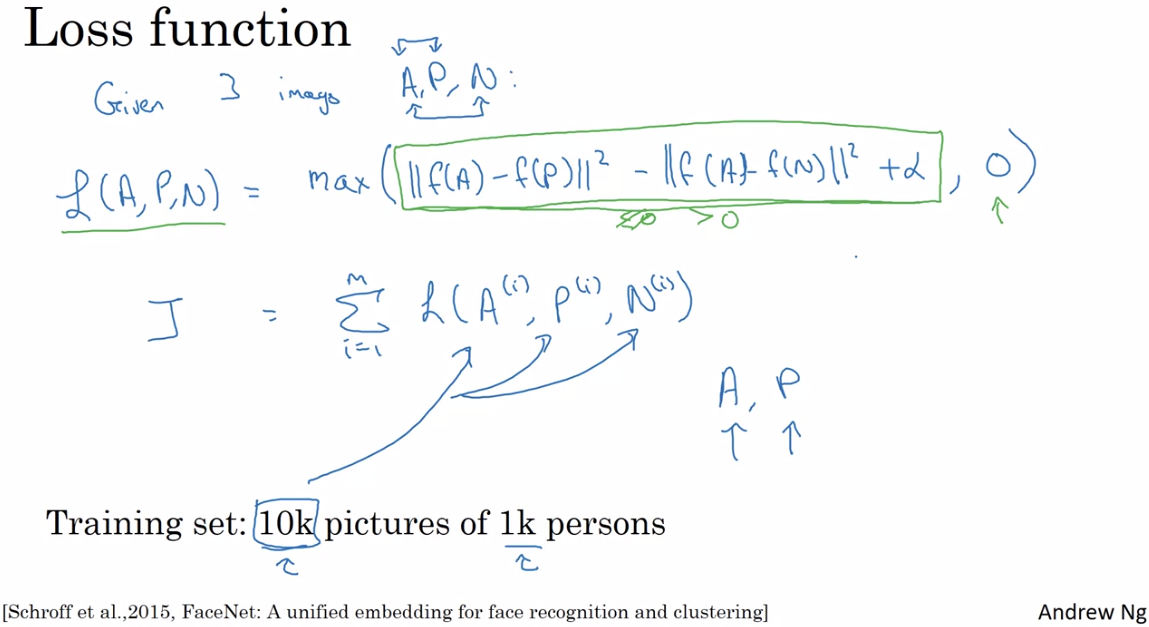 Loss function
Given 3 images A, P, N:
L(A, P, N) = max(||f(A) - f(P)||² - ||f(A) - f(N)||² + α, 0)
≤0 >0
J = Σ_{i=1}^{m} L(A^(i), P^(i), N^(i))
A, P
Training set: 10k pictures of 1k persons
[Schroff et al.,2015, FaceNet: A unified embedding for face recognition and clustering]
Andrew Ng